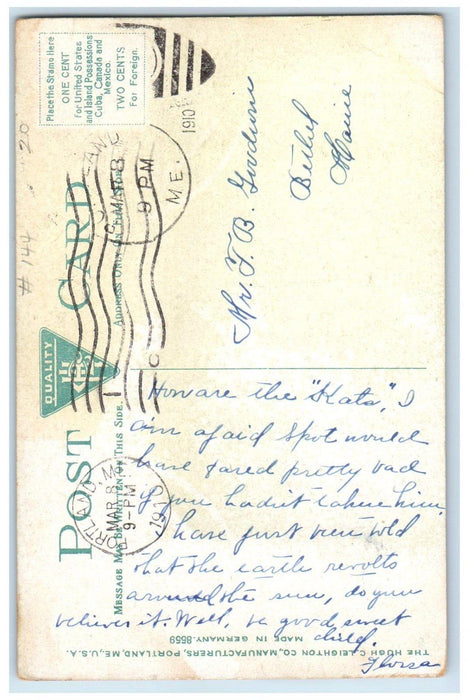 Place the Stamp Here
ONE CENT
for United States
and Island Possessions
Cuba, Canada and
Mexico.
TWO CENTS
for Foreign.
POST CARD
QUALITY
MESSAGE MAY BE WRITTEN ON THIS SIDE.
ADDRESS ONLY ON THIS SIDE.
# 144
20
1910
MAR 8
9 PM
ME.
C
PORTLAND, ME.
MAR 8
9-PM
1910
Mr. F. B. Goodwin
Bethel
Maine
How are the "Kats", I
am afaid spot would
have fared pretty bad
if you hadn't taken him.
I have just been told
that the earth revolts
around the sun, do you
believe it. Well, be good, sweet
child.
THE HUGH C. LEIGHTON CO., MANUFACTURERS, PORTLAND, ME., U.S.A.
MADE IN GERMANY. 8559